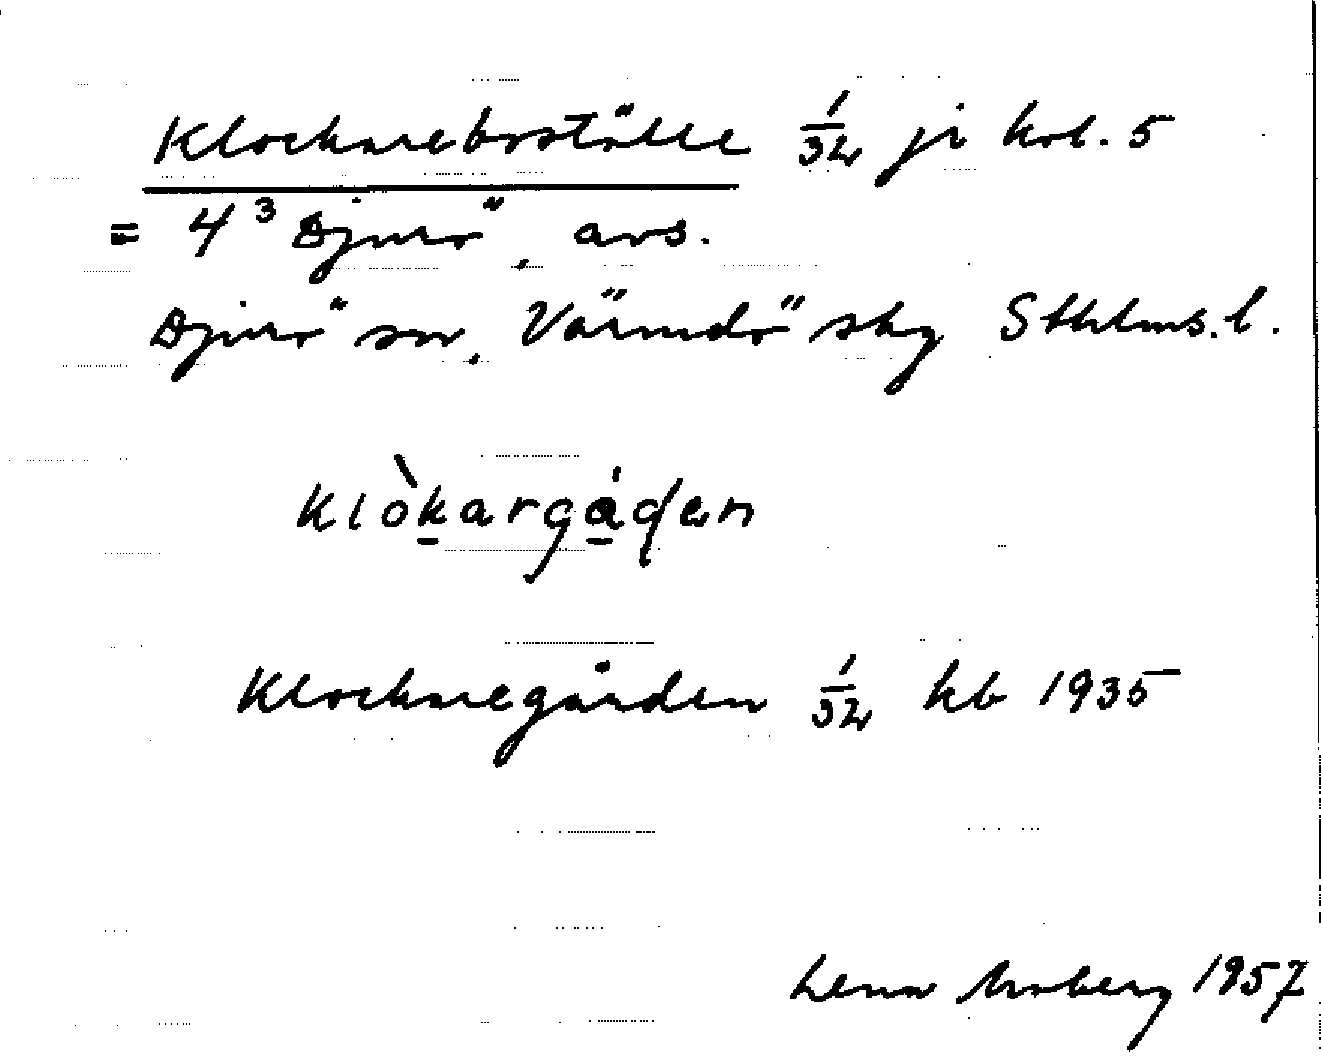 Klockareboställe 1/32 ji kol. 5
= 4³ Djurö, avs.
Djurö sn, Värmdö skg Sthlms. l.
Klòkargáden
Klockaregården 1/32 kb 1935
Lena Moberg 1957